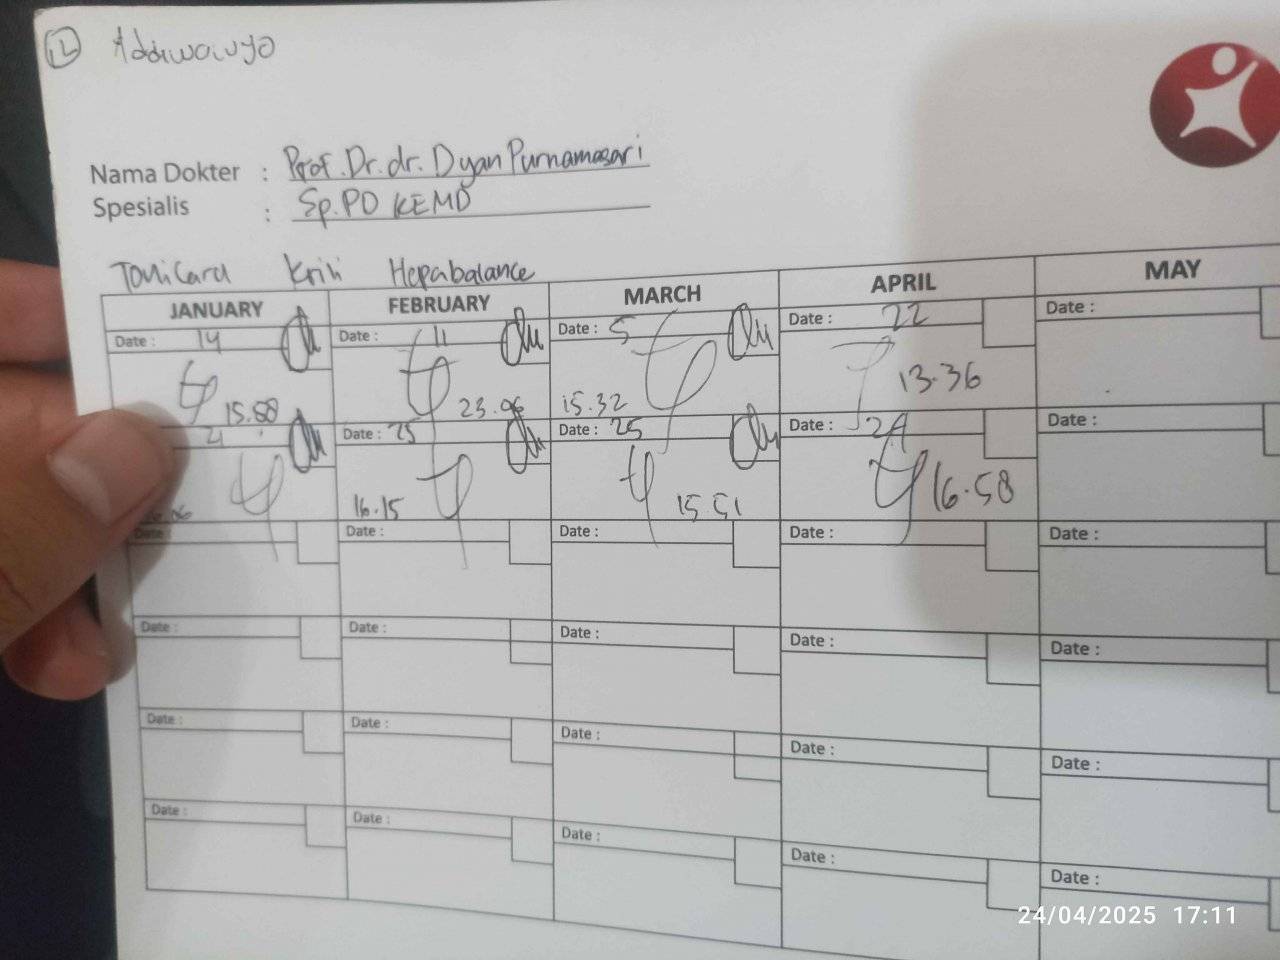 12 Adiwaluyo
Nama Dokter : Prof. Dr. dr. Dyan Purnamasari
Spesialis : Sp.PD KEMD
Krili Hepabalance
JANUARY FEBRUARY MARCH APRIL MAY
Date : 14 Date : 11 Date : 5 Date : 22 Date :
15.32 13.36
21 Date : 25 Date : 25 Date : 24 Date :
16.15 15 51 16.58
Date : Date : Date : Date : Date :
Date : Date : Date : Date : Date :
Date : Date : Date : Date : Date :
Date : Date : Date : Date : Date :
24/04/2025 17:11